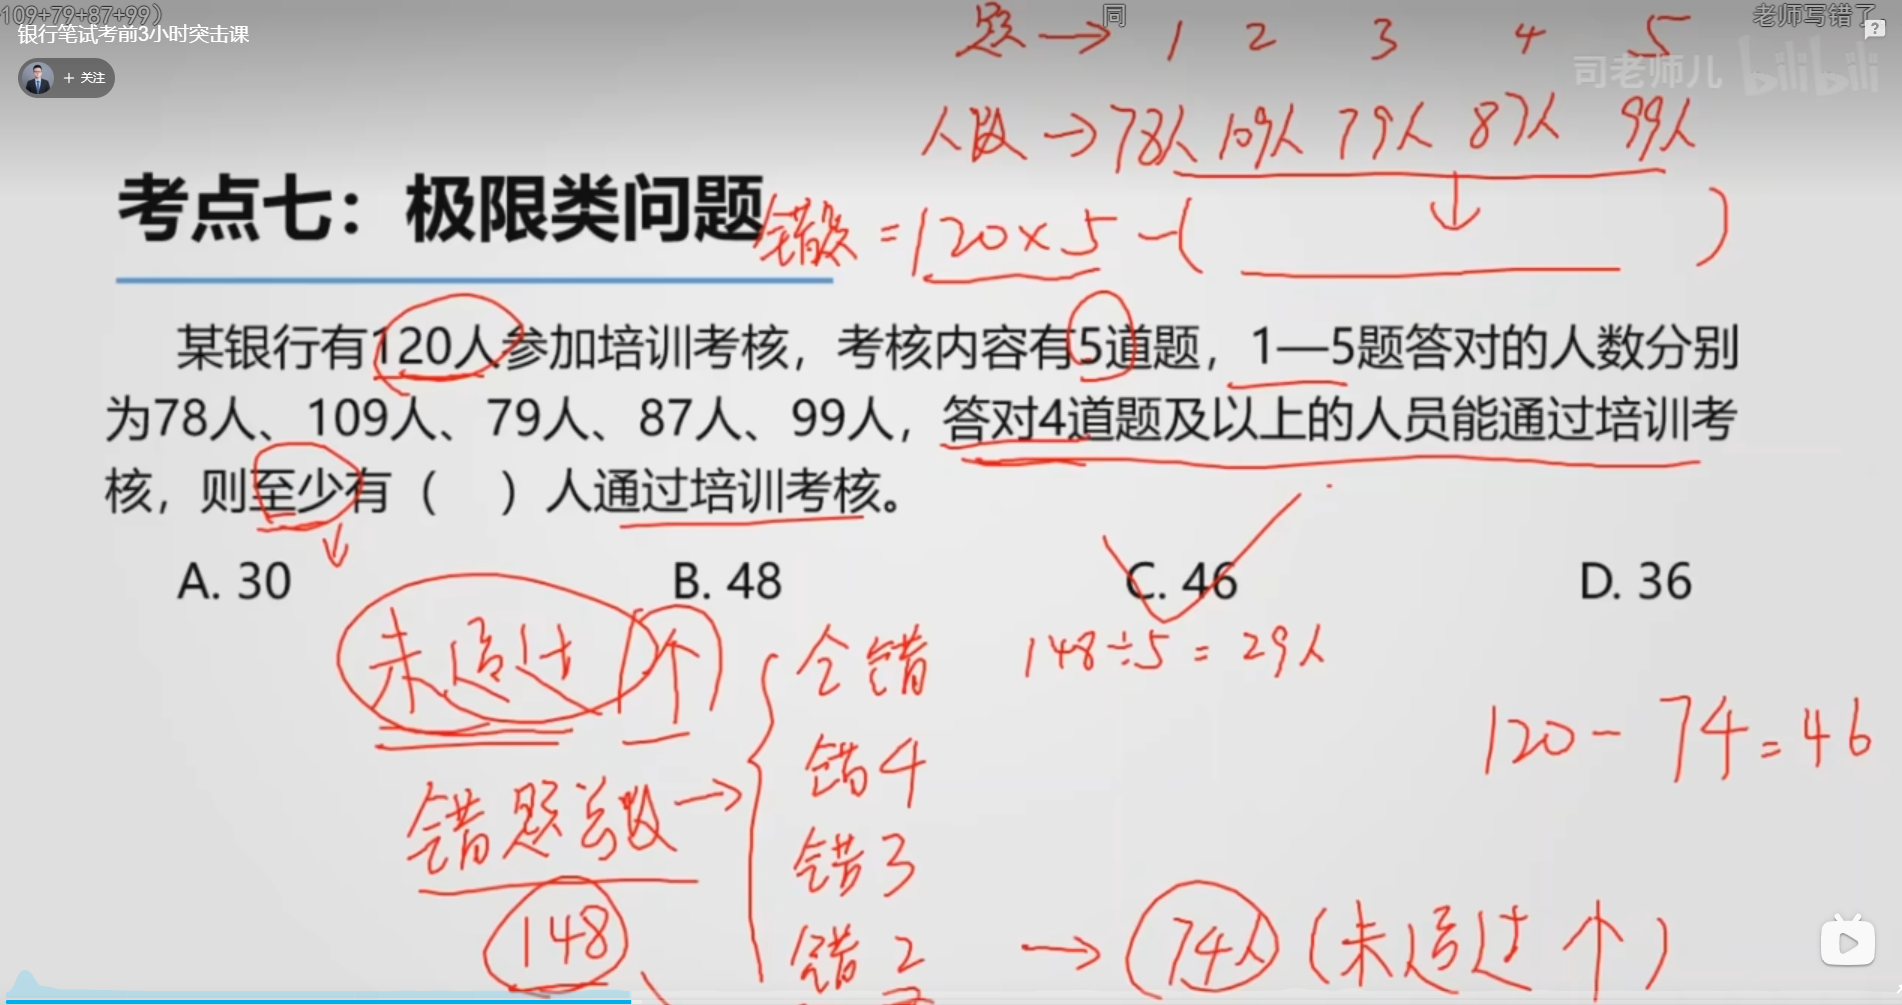 109+79+87+99）
同
老师写错了
银行笔试考前3小时突击课
+ 关注
司老师儿 bilibili
题 → 1 2 3 4 5
人数 → 78人 109人 79人 87人 99人
考点七：极限类问题
错误 = 120×5-( )
某银行有120人参加培训考核，考核内容有5道题，1—5题答对的人数分别
为78人、109人、79人、87人、99人，答对4道题及以上的人员能通过培训考
核，则至少有（ ）人通过培训考核。
A. 30 B. 48 C. 46 D. 36
未通过↑
全错 148÷5=29人
错4
120-74=46
错题总数 →
错3
148
错2 → 74人（未通过↑）